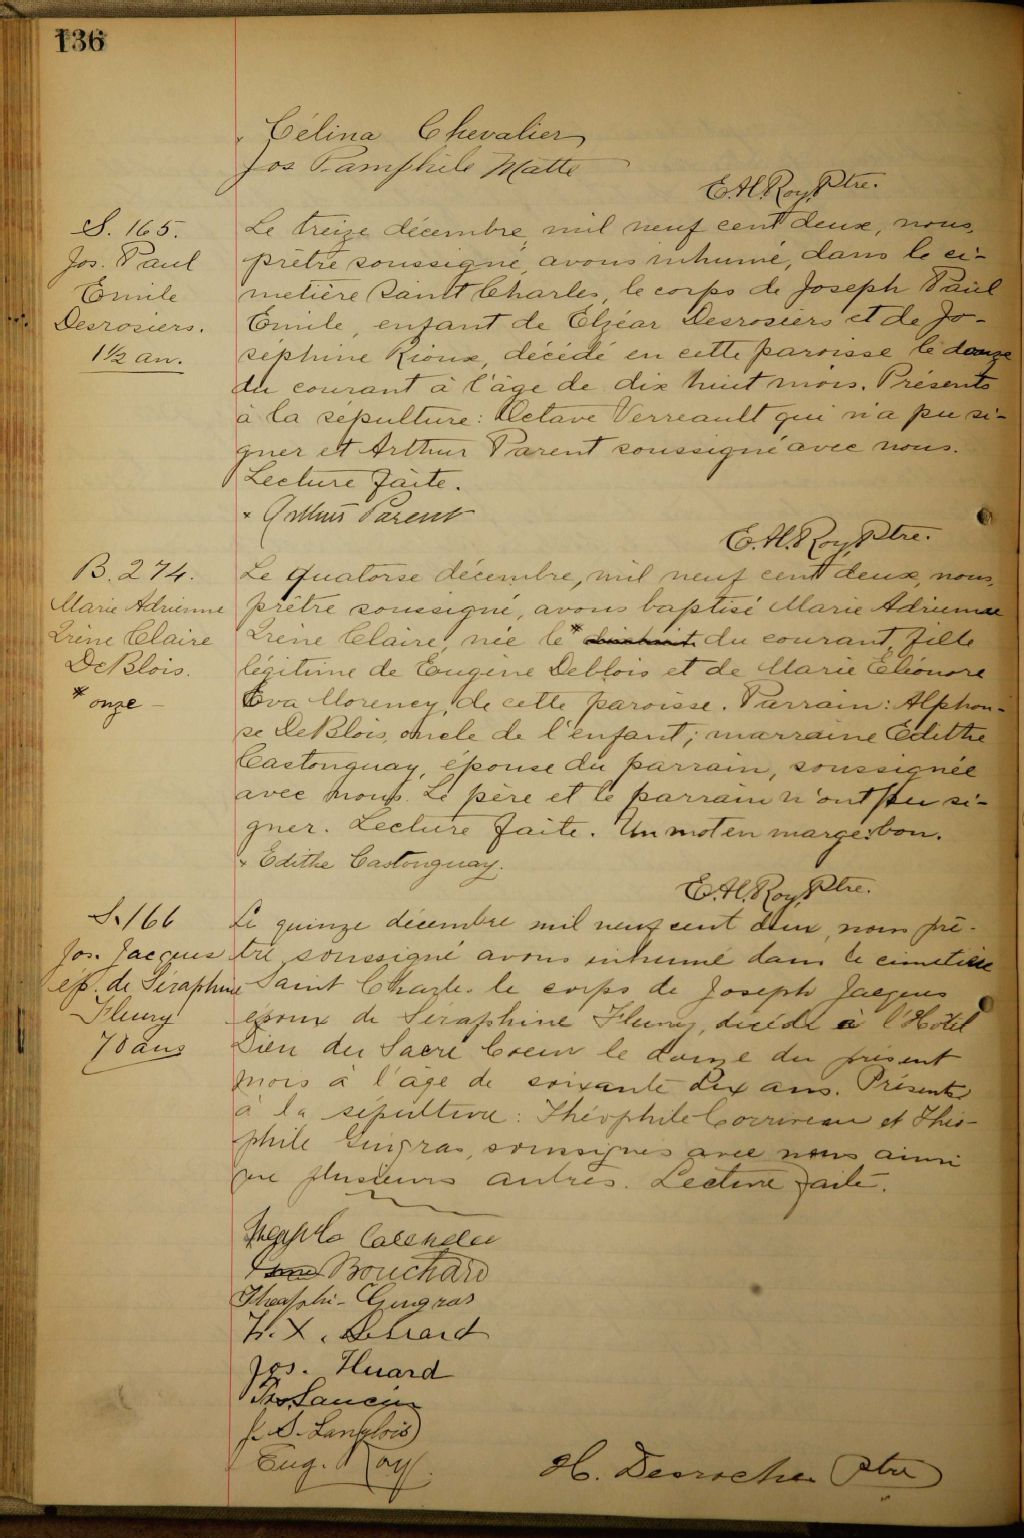 136
Célina Chevalier
Jos Pamphile Matte
E.H. Roy, Ptre.
S. 165.
Jos. Paul
Emile
Desrosiers.
1½ an.
Le treize décembre, mil neuf cent deux, nous,
prêtre soussigné, avons inhumé, dans le ci-
metière Saint Charles, le corps de Joseph Paul
Emile, enfant de Elzéar Desrosiers et de Jo-
séphine Rioux, décédé en cette paroisse le douze
du courant à l'âge de dix huit mois. Présents
à la sépulture: Octave Verreault qui n'a pu si-
gner et Arthur Parent soussigné avec nous.
Lecture faite.
Arthur Parent
E.H. Roy, Ptre.
B. 274.
Marie Adrienne
Irène Claire
DeBlois.
* onze -
Le quatorse décembre, mil neuf cent deux, nous,
prêtre soussigné, avons baptisé Marie Adrienne
Irène Claire, née le * du courant, fille
légitime de Eugène Deblois et de Marie Eléonore
Eva Morency, de cette paroisse. Parrain: Alphon-
se DeBlois, oncle de l'enfant; marraine Edithe
Castonguay, épouse du parrain, soussignée
avec nous. Le père et le parrain n'ont pu si-
gner. Lecture faite. Un mot en marge: bon.
Edithe Castonguay.
E.H. Roy, Ptre.
S. 166
Jos. Jacques
ép. de Séraphine
Fleury
70 ans
Le quinze décembre mil neuf cent deux, nous prê-
tre soussigné avons inhumé dans le cimetière
Saint Charles le corps de Joseph Jacques
époux de Séraphine Fleury, décédé à l'Hôtel
Dieu du Sacré Coeur le douze du présent
mois à l'âge de soixante dix ans. Présents
à la sépulture: Théophile Corriveau et Théo-
phile Gingras, soussignés avec nous ainsi
que plusieurs autres. Lecture faite.
Bouchard
Gingras
Jos. Huard
J. S. Langlois
Eug. Roy
H. Desrochers Ptre